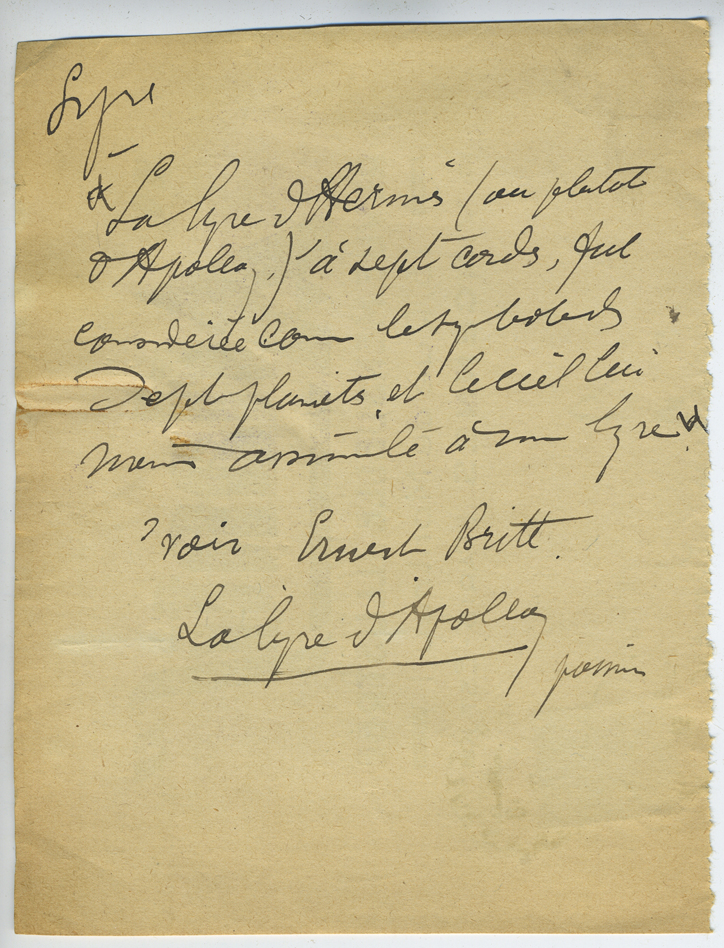 Lyre
La lyre d'Hermès (ou plutôt
d'Apollon,) à sept cordes, fut
considérée comme le symbole des
Sept planètes, et le ciel lui
même assimilé à une lyre.
voir Ernest Britt.
La lyre d'Apollon
passim